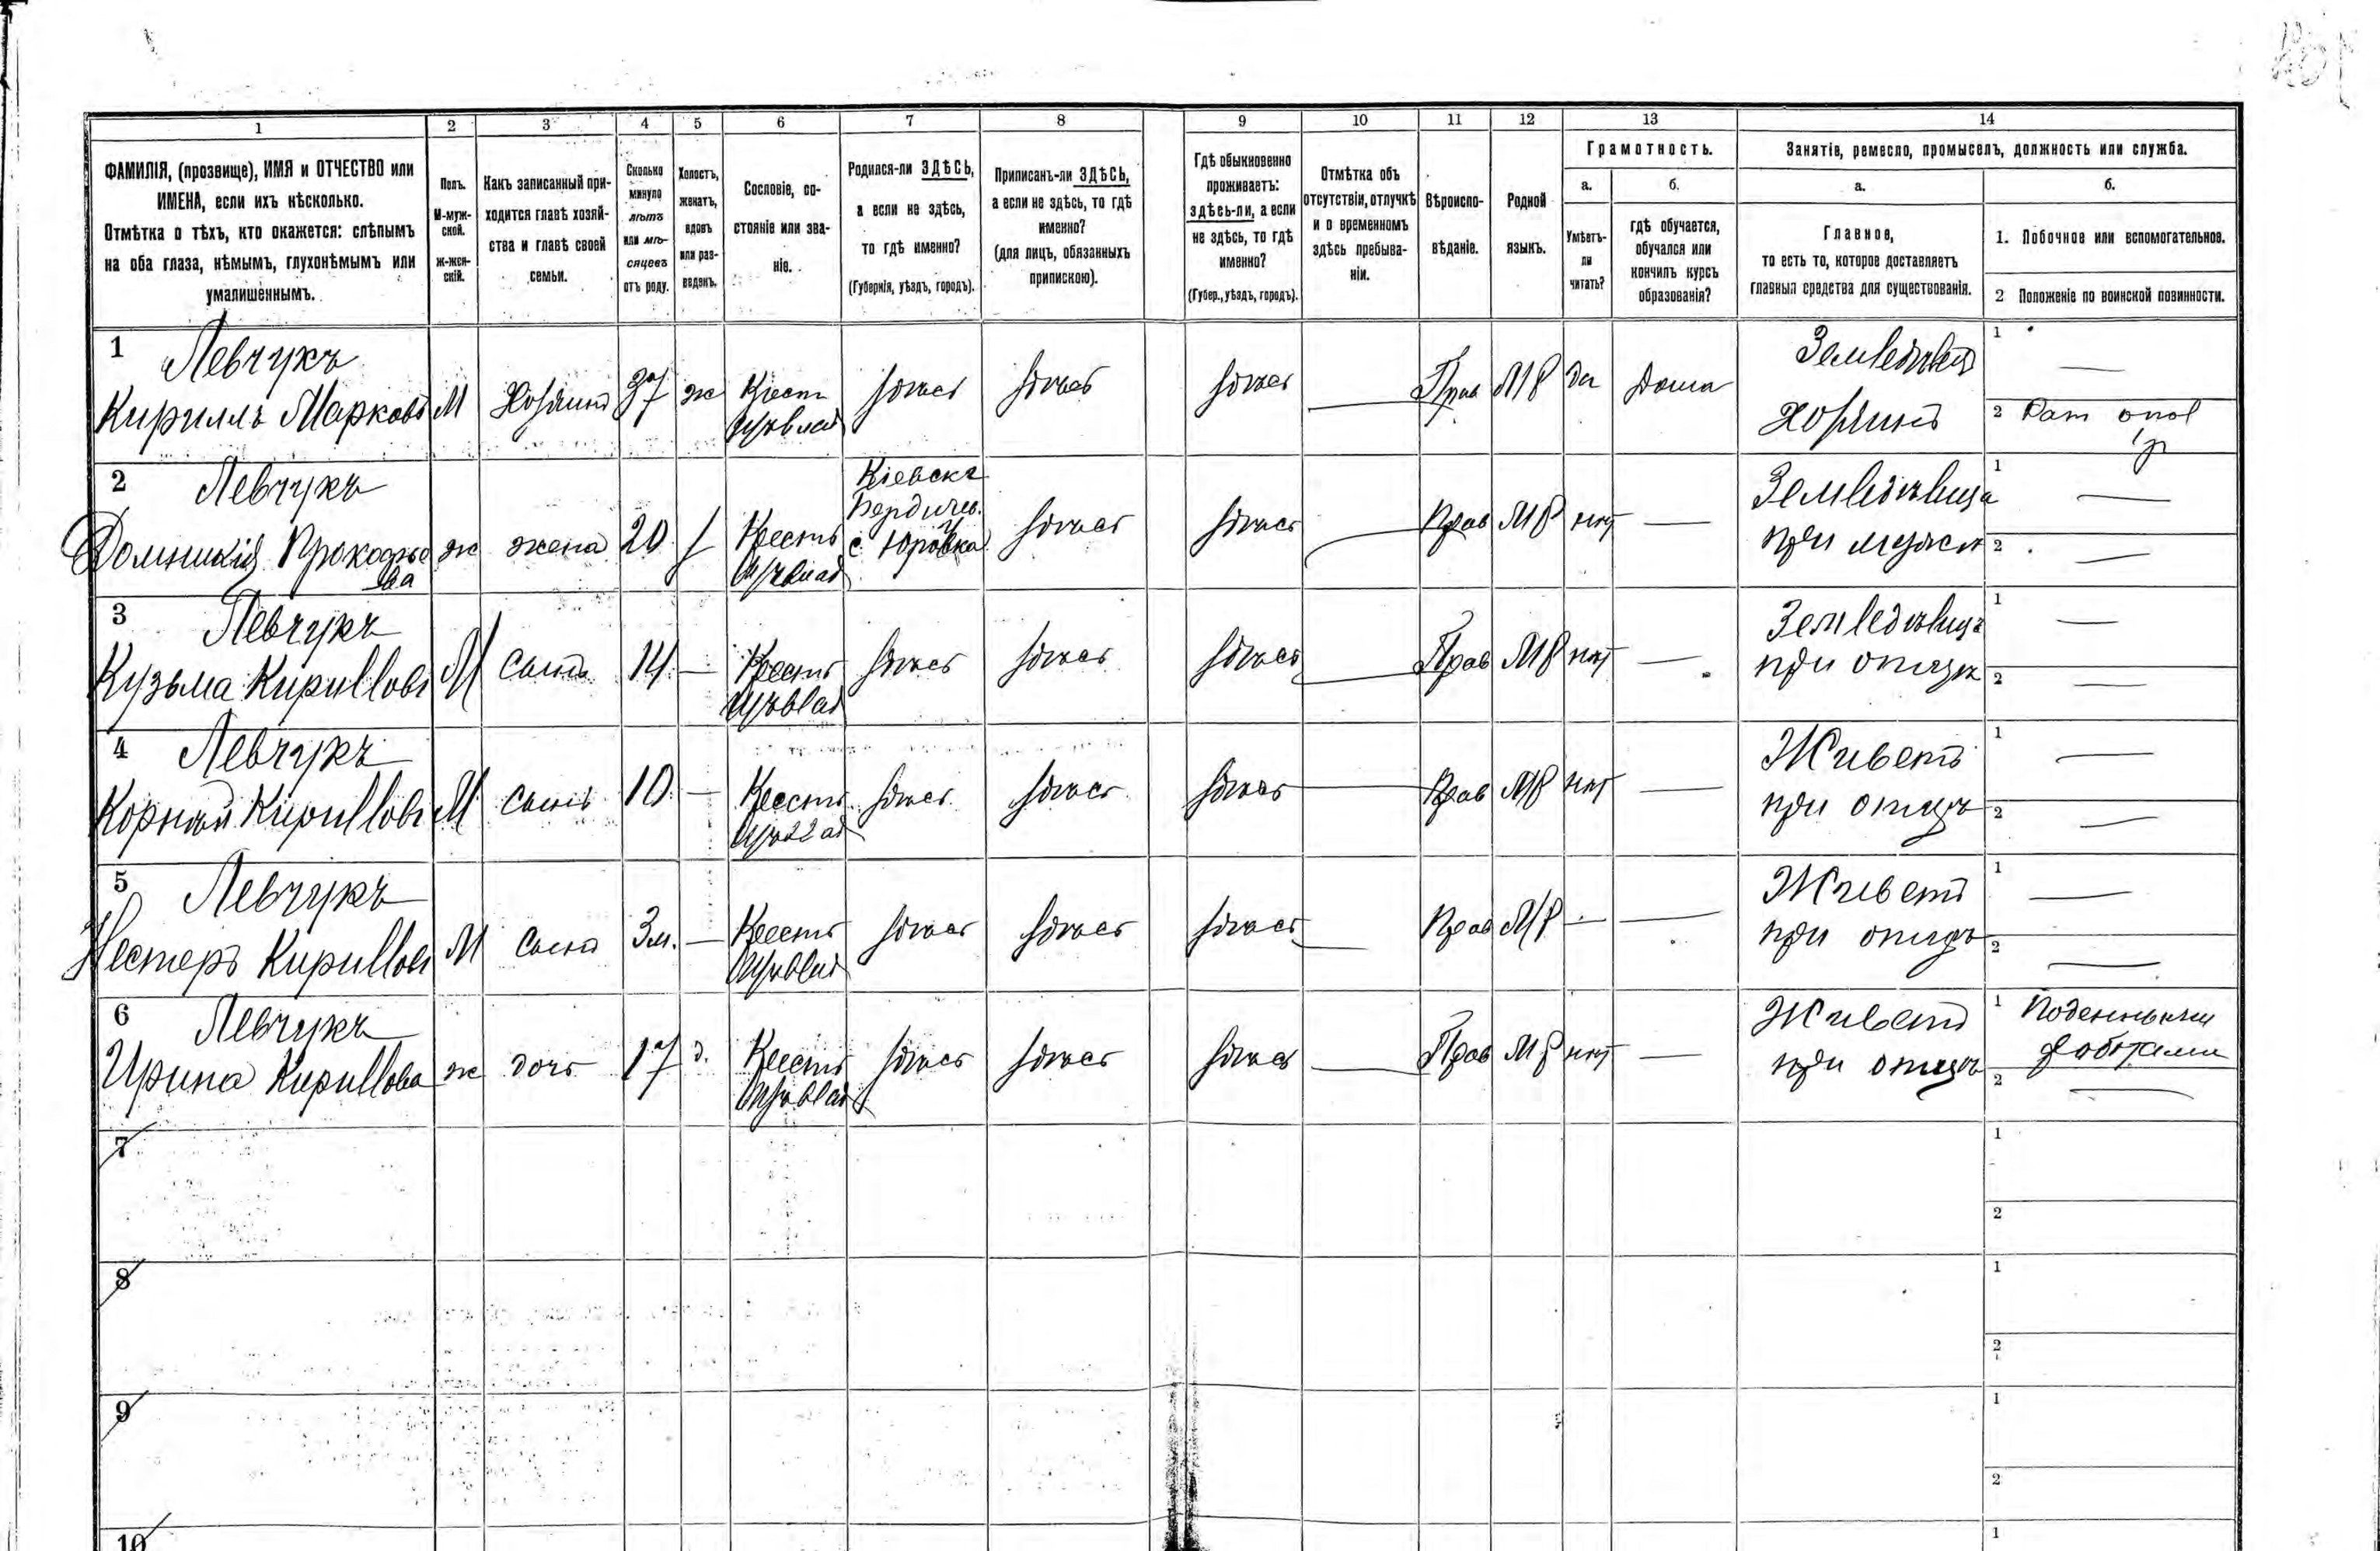 1 2 3 4 5 6 7 8 9 10 11 12 13 14
ФАМИЛІЯ, (прозвище), ИМЯ и ОТЧЕСТВО или
ИМЕНА, если ихъ нѣсколько.
Отмѣтка о тѣхъ, кто окажется: слѣпымъ
на оба глаза, нѣмымъ, глухонѣмымъ или
умалишеннымъ.
Полъ.
М-муж-
ской.
ж-жен-
скій.
Какъ записанный при-
ходится главѣ хозяй-
ства и главѣ своей
семьи.
Сколько
минуло
лѣтъ
или мѣ-
сяцевъ
отъ роду.
Холостъ,
женатъ,
вдовъ
или раз-
веденъ.
Сословіе, со-
стояніе или зва-
ніе.
Родился-ли ЗДѢСЬ,
а если не здѣсь,
то гдѣ именно?
(Губернія, уѣздъ, городъ).
Приписанъ-ли ЗДѢСЬ,
а если не здѣсь, то гдѣ
именно?
(для лицъ, обязанныхъ
припискою).
Гдѣ обыкновенно
проживаетъ:
здѣсь-ли, а если
не здѣсь, то гдѣ
именно?
(Губер., уѣздъ, городъ).
Отмѣтка объ
отсутствіи, отлучкѣ
и о временномъ
здѣсь пребыва-
ніи.
Вѣроиспо-
вѣданіе.
Родной
языкъ.
Грамотность.
а.
Умѣетъ-
ли
читать?
б.
гдѣ обучается,
обучался или
кончилъ курсъ
образованія?
Занятіе, ремесло, промыселъ, должность или служба.
а.
Главное,
то есть то, которое доставляетъ
главныя средства для существованія.
б.
1. Побочное или вспомогательное.
2 Положеніе по воинской повинности.
1 Левчукъ
Кирилъ Марковъ М Хозяинъ 37 ж Крест здѣсь здѣсь здѣсь — Прав МР да Дома
Земледѣлец
хозяинъ
1 —
2 Рат опол
2 Левчукъ
Прокофье
ва ж жена 20 Крестъ
Кіевск
Бердичев. у
с. Юровка
здѣсь здѣсь Прав МР нѣт —
при мужѣ
1 —
2 —
3 Левчукъ
Кузьма Кирилловъ М сынъ 14 — Крестъ здѣсь здѣсь здѣсь — Прав МР нѣт —
при отцѣ
1 —
2 —
4 Левчукъ
Корнѣй Кирилловъ М сынъ 10 — Крестъ здѣсь здѣсь здѣсь — Прав МР нѣт —
Живетъ
при отцѣ
1 —
2 —
5 Левчукъ
Нестеръ Кирилловъ М сынъ 3м. — Крестъ здѣсь здѣсь здѣсь — Прав МР — —
Живетъ
при отцѣ
1 —
2 —
6 Левчукъ
Ирина Кириллова ж дочь 17 д. Крестъ здѣсь здѣсь здѣсь — Прав МР нѣт —
Живетъ
при отцѣ
1 Поденными
работами
2 —
7
1
2
8
1
2
9
1
2
10
1